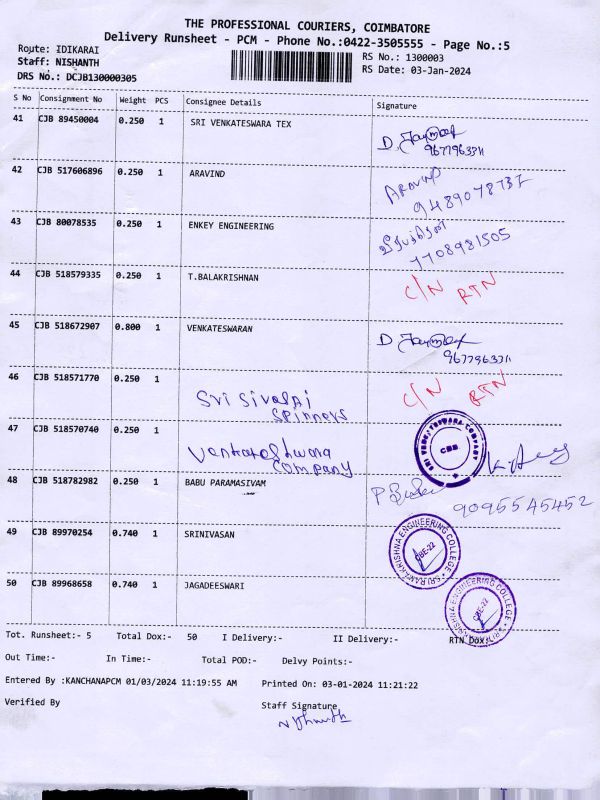 THE PROFESSIONAL COURIERS, COIMBATORE
Delivery Runsheet - PCM - Phone No.:0422-3505555 - Page No.:5
Route: IDIKARAI
Staff: NISHANTH
DRS No.: DCJB130000305
RS No.: 1300003
RS Date: 03-Jan-2024
S No Consignment No Weight PCS Consignee Details Signature
41 CJB 89450004 0.250 1 SRI VENKATESWARA TEX
D. 9677963311
42 CJB 517606896 0.250 1 ARAVIND
ARAVIND
9489078737
43 CJB 80078535 0.250 1 ENKEY ENGINEERING
7708981505
44 CJB 518579335 0.250 1 T.BALAKRISHNAN
C/N RTN
45 CJB 518672907 0.800 1 VENKATESWARAN
D 9677963311
46 CJB 518571770 0.250 1 Sri Sivalni Spinners
C/N RTN
47 CJB 518570740 0.250 1 Venkateshwara Company
SRI VENKATESWARA COMPANY CBE
48 CJB 518782982 0.250 1 BABU PARAMASIVAM
9095545452
49 CJB 89970254 0.740 1 SRINIVASAN
SRI RAMAKRISHNA ENGINEERING COLLEGE CBE-22
50 CJB 89968658 0.740 1 JAGADEESWARI
ENGINEERING COLLEGE CBE-22
Tot. Runsheet:- 5 Total Dox:- 50 I Delivery:- II Delivery:- RTN Dox:-
Out Time:- In Time:- Total POD:- Delvy Points:-
Entered By :KANCHANAPCM 01/03/2024 11:19:55 AM Printed On: 03-01-2024 11:21:22
Verified By Staff Signature
Nishanth